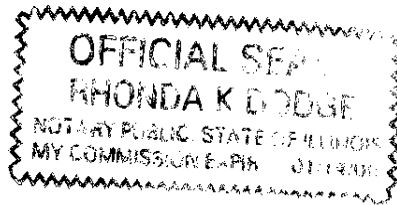 OFFICIAL SEAL
RHONDA K DODGE
NOTARY PUBLIC STATE OF ILLINOIS
MY COMMISSION